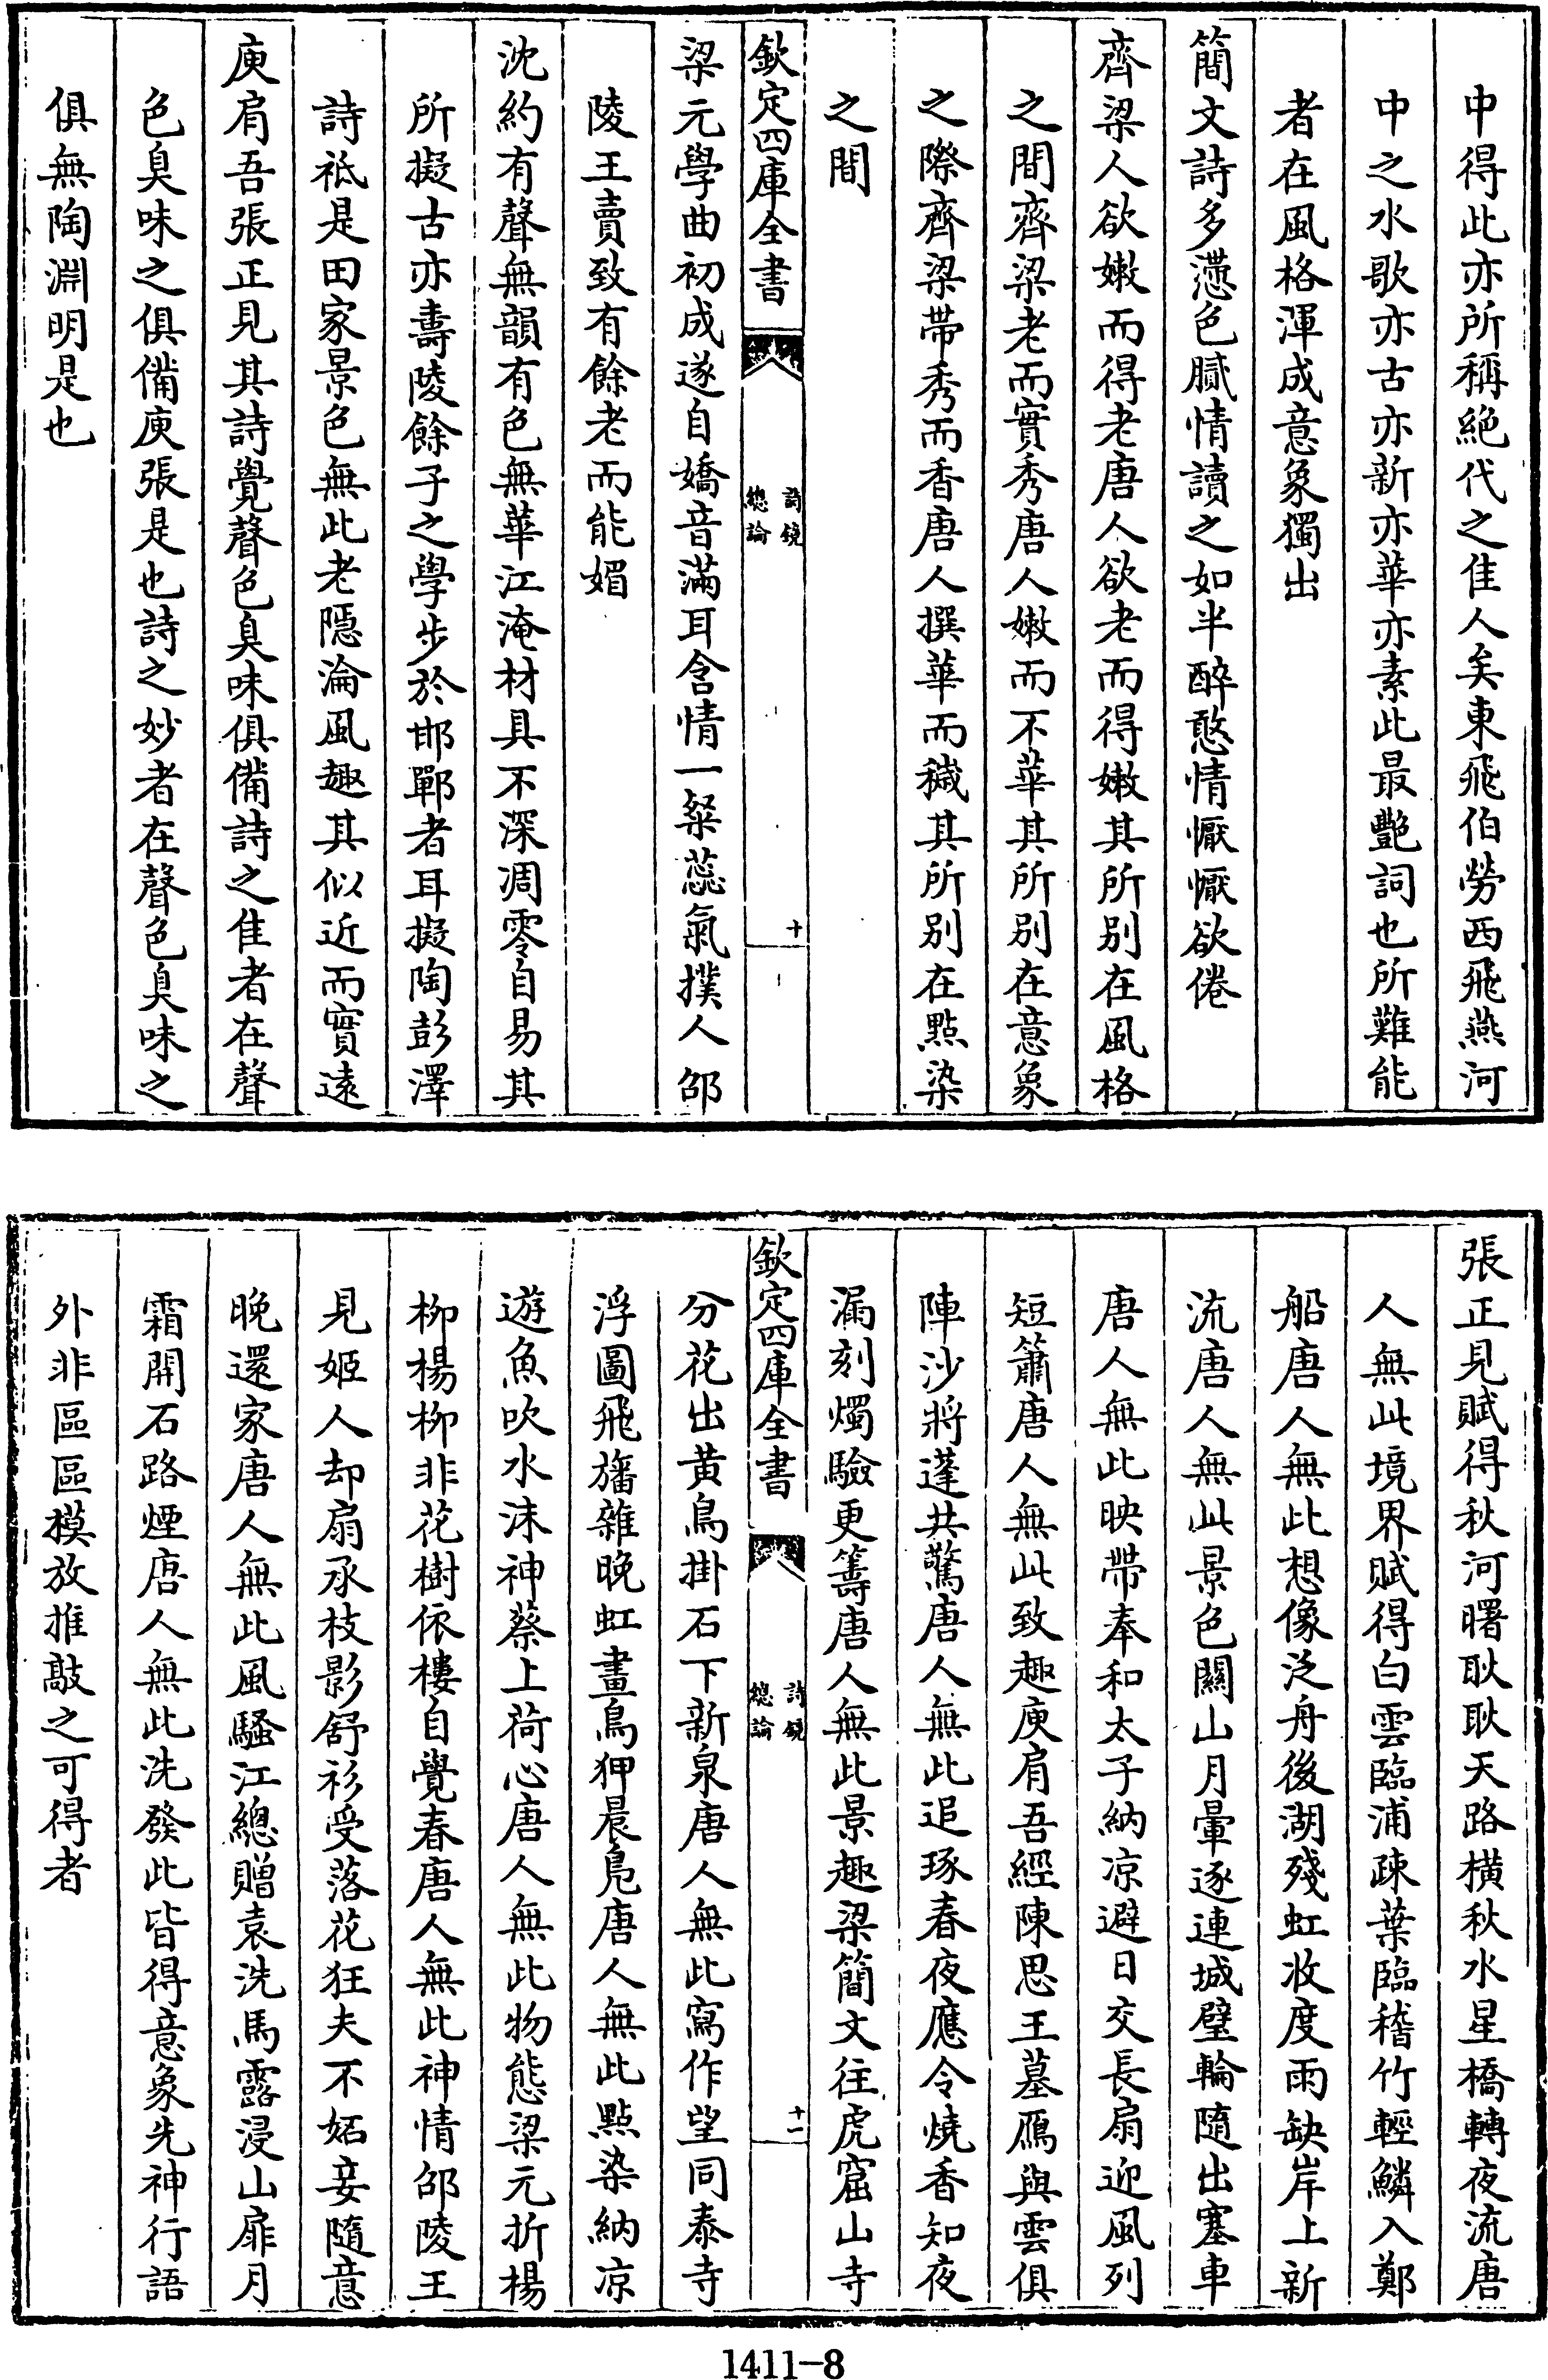 中得此亦所稱絕代之佳人矣東飛伯勞西飛燕河
中之水歌亦古亦新亦華亦素此最艷詞也所難能
者在風格渾成意象獨出
簡文詩多滯色膩情讀之如半醉憨情懨懨欲倦
齊梁人欲嫩而得老唐人欲老而得嫩其所别在風格
之間齊梁老而實秀唐人嫩而不華其所别在意象
之際齊梁帶秀而香唐人撰華而穢其所别在點染
之間
欽定四庫全書
詩鏡
總論
十
梁元學曲初成遂自嬌音滿耳含情一粲蕊氣撲人邵
陵王賣致有餘老而能媚
沈約有聲無韻有色無華江淹材具不深凋零自易其
所擬古亦壽陵餘子之學步於邯鄲者耳擬陶彭澤
詩祗是田家景色無此老隱淪風趣其似近而實遠
庾肩吾張正見其詩覺聲色臭味俱備詩之佳者在聲
色臭味之俱備庾張是也詩之妙者在聲色臭味之
俱無陶淵明是也
張正見賦得秋河曙耿耿天路横秋水星橋轉夜流唐
人無此境界賦得白雲臨浦疎葉臨嵇竹輕鱗入鄭
船唐人無此想像泛舟後湖殘虹收度雨缺岸上新
流唐人無此景色關山月暈逐連城璧輪隨出塞車
唐人無此映帶奉和太子納凉避日交長扇迎風列
短簫唐人無此致趣庾肩吾經陳思王墓鴈與雲俱
陣沙將蓬共驚唐人無此追琢春夜應令燒香知夜
漏刻燭驗更籌唐人無此景趣梁簡文往虎窟山寺
欽定四庫全書
詩鏡
總論
十一
分花出黄鳥掛石下新泉唐人無此寫作望同泰寺
浮圖飛旛雜晚虹畫鳥狎晨鳬唐人無此點染納凉
遊魚吹水沫神蔡上荷心唐人無此物態梁元折楊
柳楊柳非花樹依樓自覺春唐人無此神情邵陵王
見姬人却扇承枝影舒衫受落花狂夫不妬妾隨意
晚還家唐人無此風騷江總贈袁洗馬露浸山扉月
霜開石路煙唐人無此洗發此皆得意象先神行語
外非區區模放推敲之可得者
1411-8